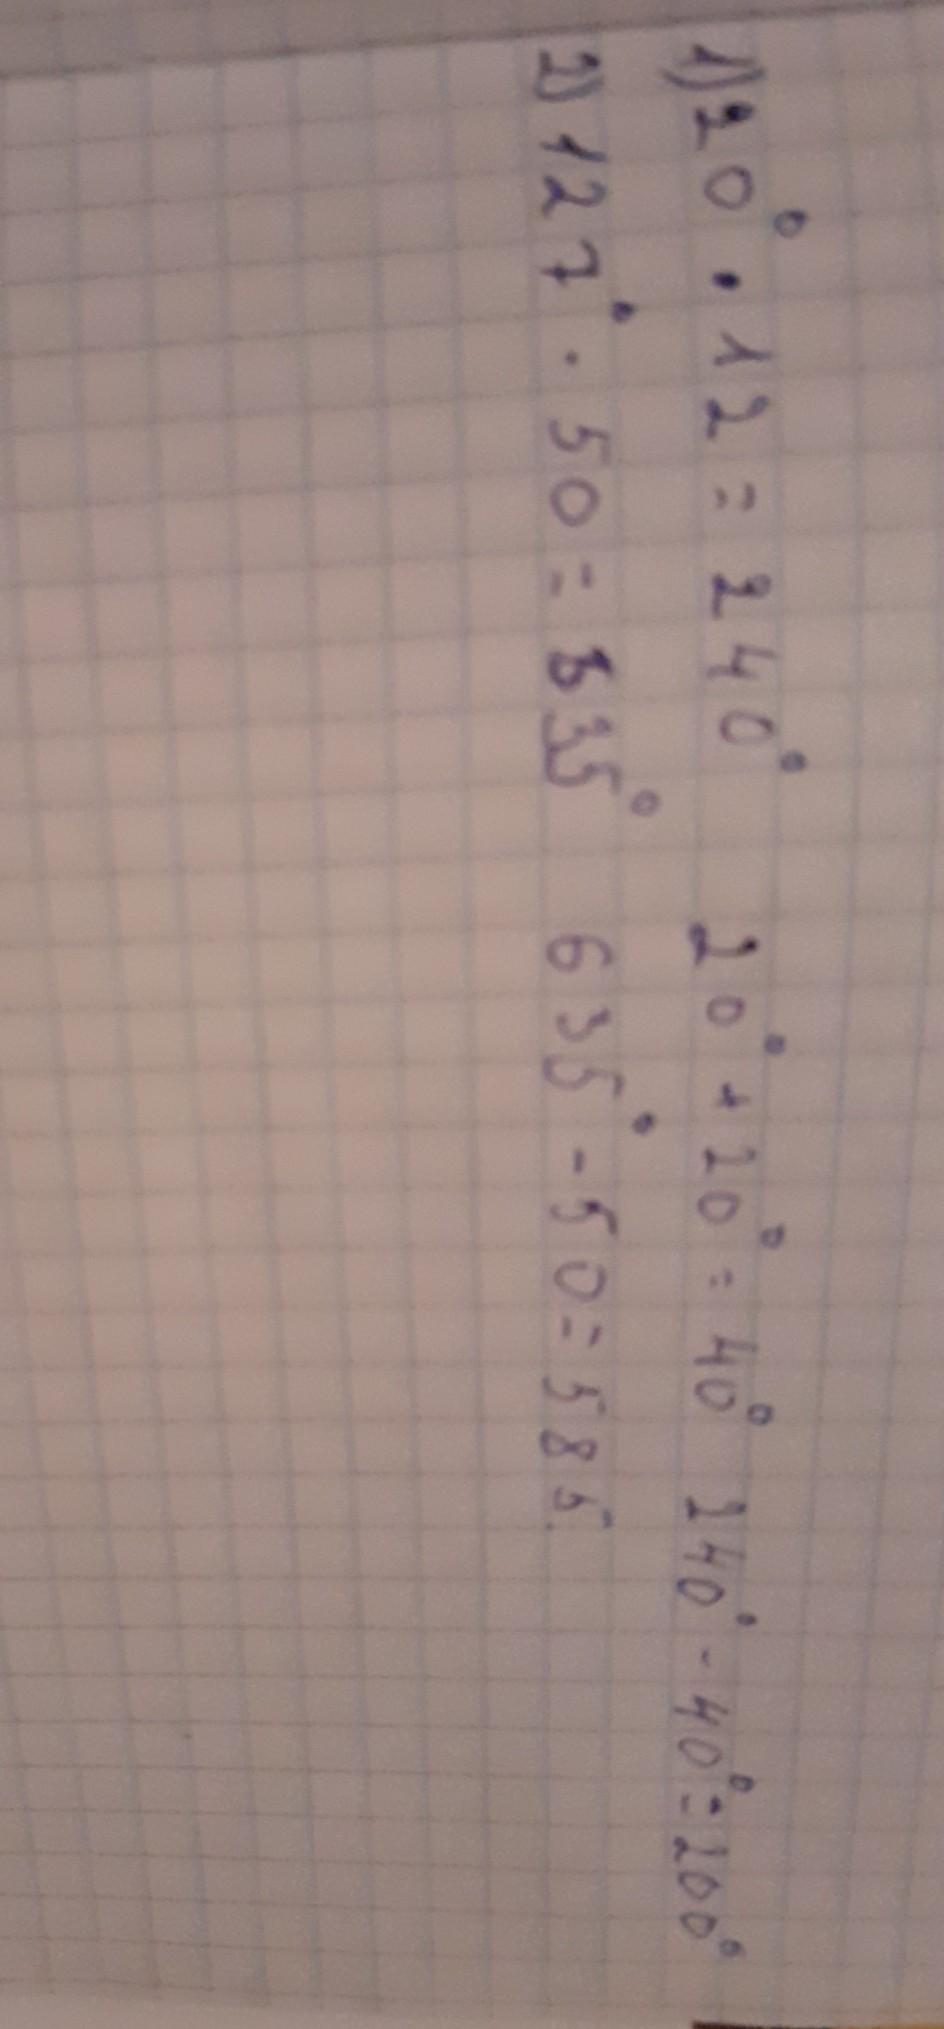 1) 20° · 12 = 240° 20° + 20° = 40° 240° - 40° = 200°
2) 127° · 50 = 635° 635° - 50 = 585.